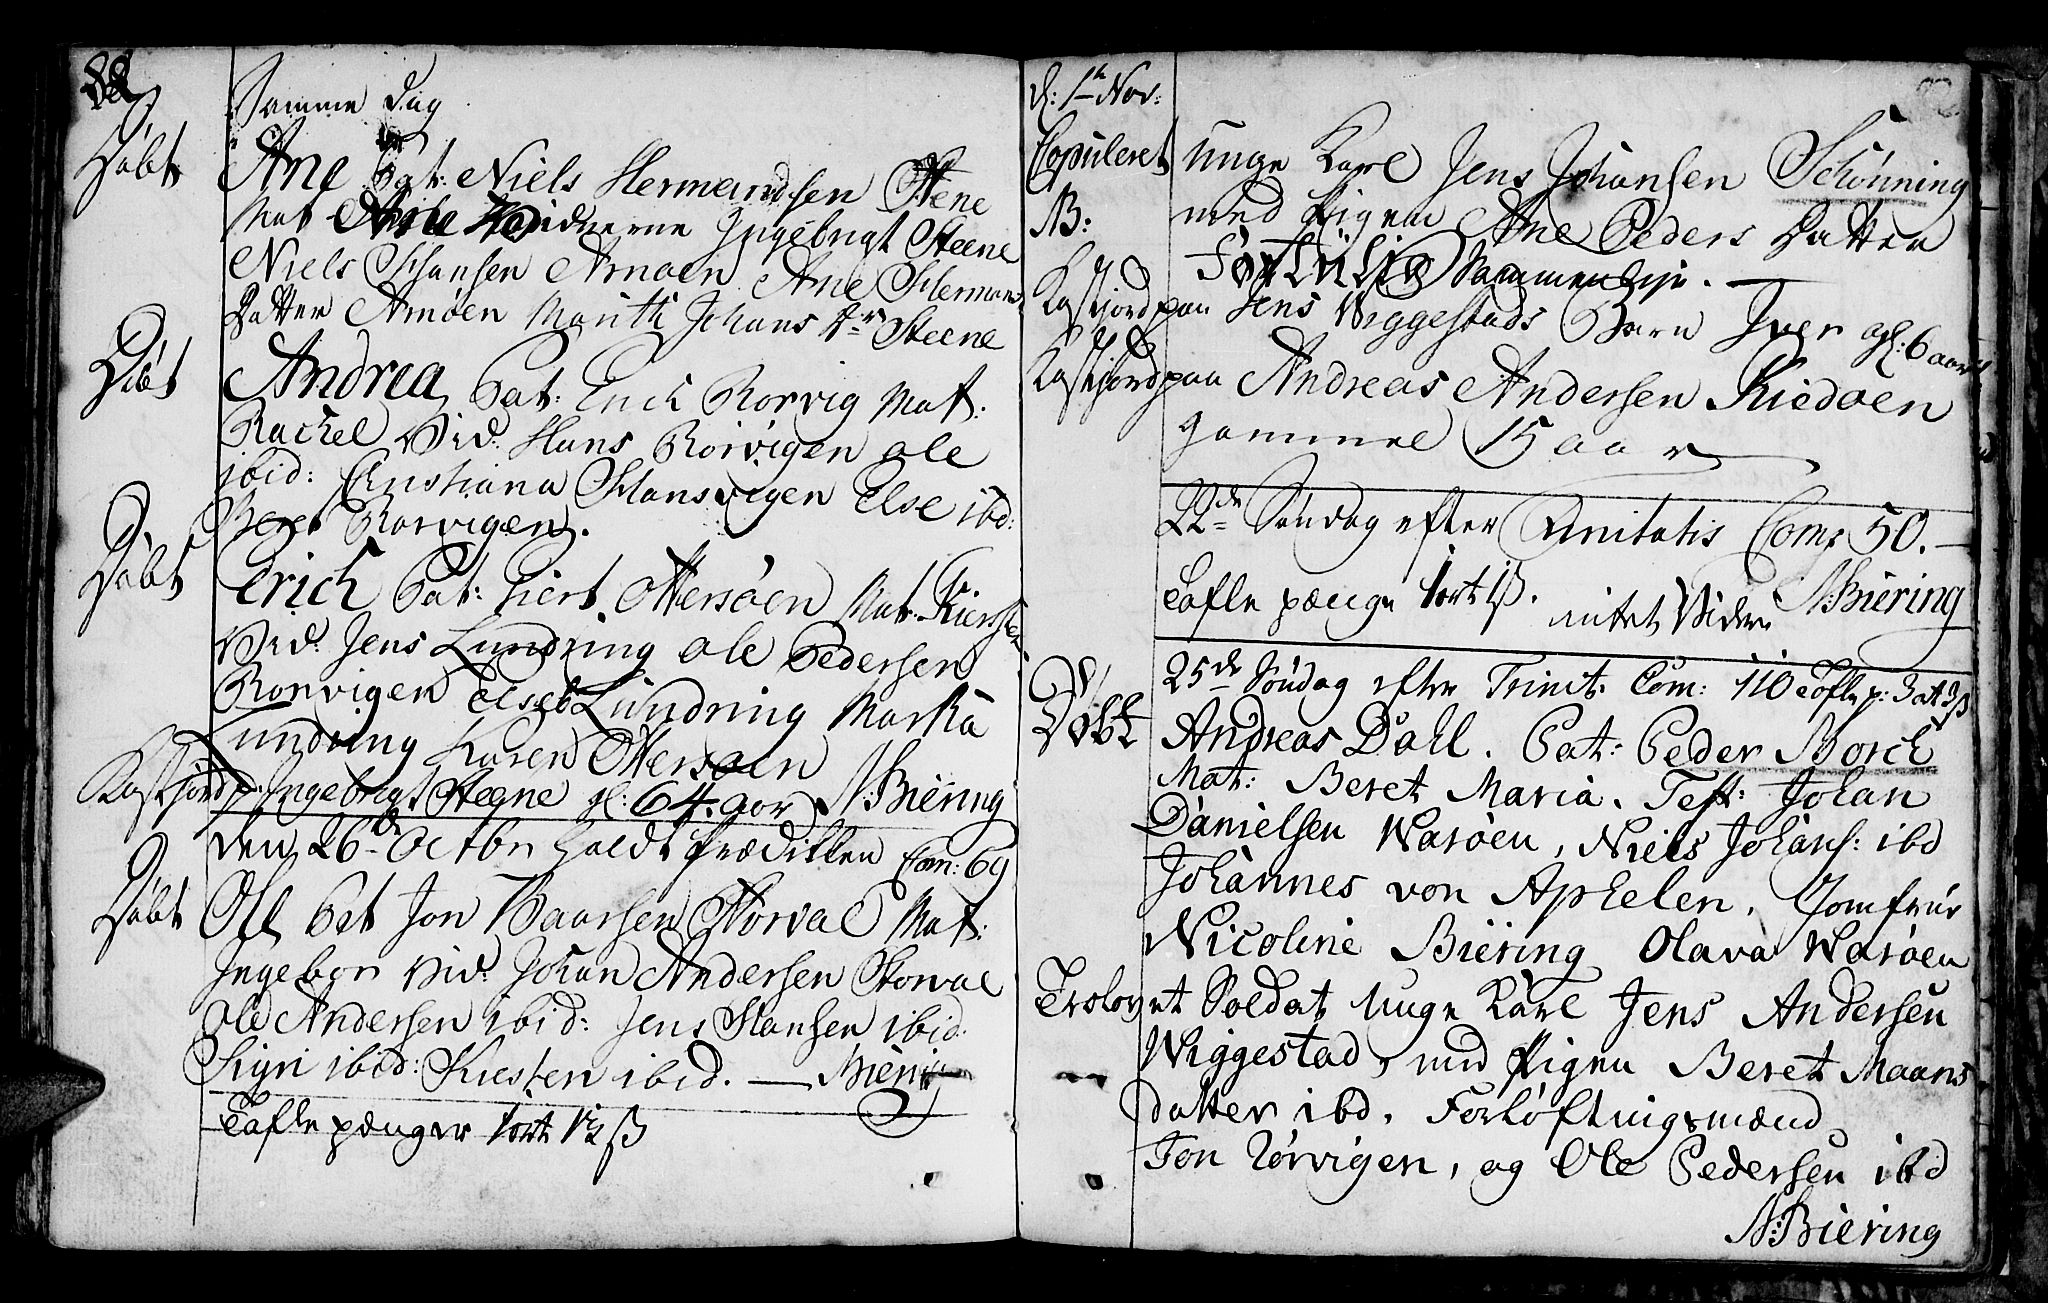 88
Samme Dag
Døbt Ane Pat: Niels Hermandsen Steene
Mat Ane Vidnerne Ingebrigt Steene
Niels Hansen Arnøen Ane Hermans
Datter Arnøen Marith Johans Dtr Steene
Døbt Andrea Pat: Erich Rorvig Mat:
Rachel Vid: Hans Rorvigen Ole
ibid: Christiana Hansvigen Else ibd:
Beret Rorvigen.
Døbt Erich Pat: Siert Ottersøen Mat. Kiersten
Vid. Jens Lundring Ole Pedersen
Rorvigen Elseb Lundring Marka
Lundring Karen Ottersøen
Kast jord p: Ingebrigt Steene gl: 64 aar N: Biering
den 26de Octbr holdt Prædikken Com: 69
Døbt Ole Pat Jon Baarsen Storval Mat:
Ingebor Vid. Johan Andersen Storval
Ole Andersen ibid: Jens Hansen ibid.
Sigri ibid: Kiesten ibid. — Biering
Tafle penger 1ort 1½ ß
d: 1te Nov:
Copuleret unge Karl Jens Johansen Schønning
N: med Pigen Ane Peders Datter
Sammenlyse.
Kast jord paa Jens Wiggestads Barn Iver gl: 6 aar
Kast jord paa Andreas Andersen Riedøen
gammel 15 aar
22de Søndag efter Trinitatis Com: 50.
Tafle penge 1ort 1ß. intet Videre N: Biering
25de Søndag efter Trinit: Com: 110 Tofle p: 3 ort 3 ß
Døbt Andreas Dahl. Pat: Peder Borch
Mat: Beret Maria. Test: Johan
Danielsen Warøen, Niels Johans: ibd
Johannes von Aphelen, Jomfrue
Nicoline Biering Olava Warøen
Troslovet Soldat unge Karl Jens Andersen
Wiggestad, med Pigen Beret Maans
datter ibd. Forløftningsmænd
Jon Rørvigen, og Ole Pedersen ibd
N: Biering